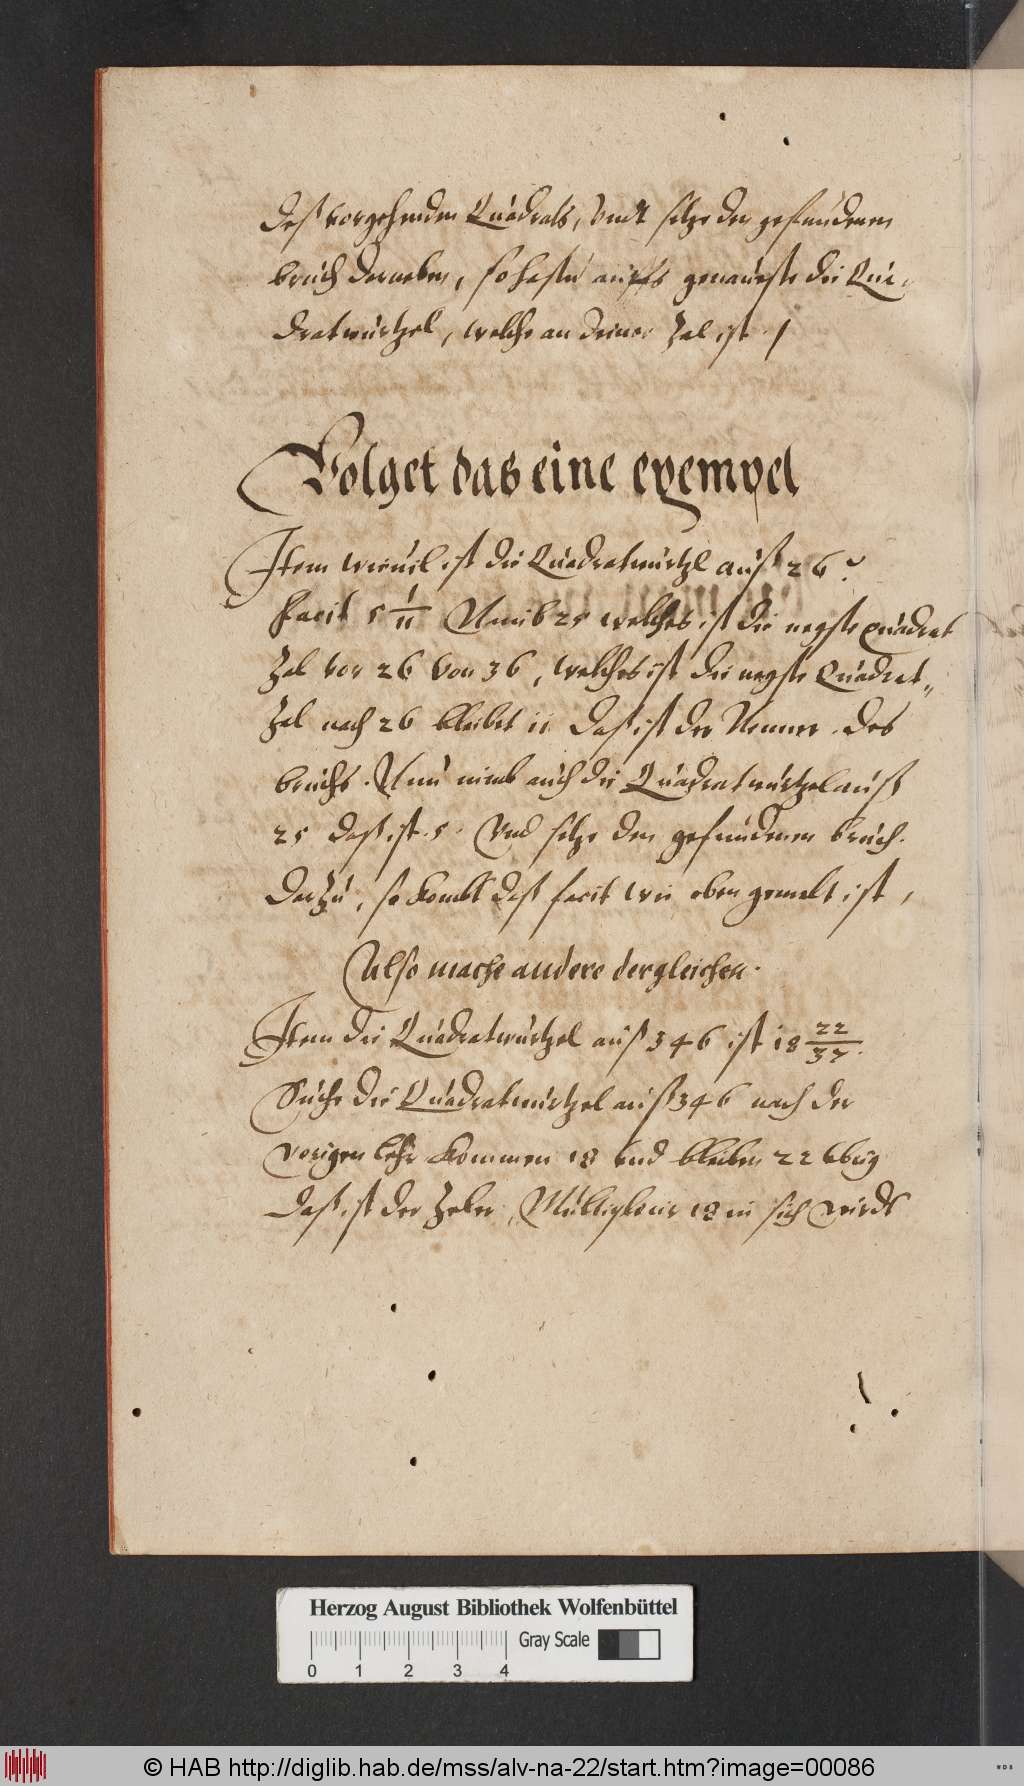 deß vorgehenden Quadrats, Vndt setze den gefundenen
bruch darneben, so hastu auffs genaueste die Qua-
dratwurtzel, welche an deiner Zal ist.
Volget das eine exempel
Item wieuil ist die Quadratwurtzl auß 26?
Facit 5 1/11 Nimb 25 welches ist die negste quadrat
Zal vor 26 von 36, welches ist die negste Quadrat-
Zal nach 26 bleibet 11 daß ist der Nenner des
bruchs. Nun nimb auch die Quadratwurtzel auß
25 daß ist 5. Vnd setze den gefundenen bruch
darzu, so kombt daß facit wie oben gemelt ist,
Also mache andere dergleichen.
Item die Quadratwurtzel auß 346 ist 18 22/37.
Suche die Quadratwurtzel auß 346 nach der
vorigen lehr kommen 18 vnd bleiben 22 vbrig
daß ist der Zeler, Multiplicir 18 in sich wirdt
Herzog August Bibliothek Wolfenbüttel
Gray Scale
0 1 2 3 4
© HAB http://diglib.hab.de/mss/alv-na-22/start.htm?image=00086